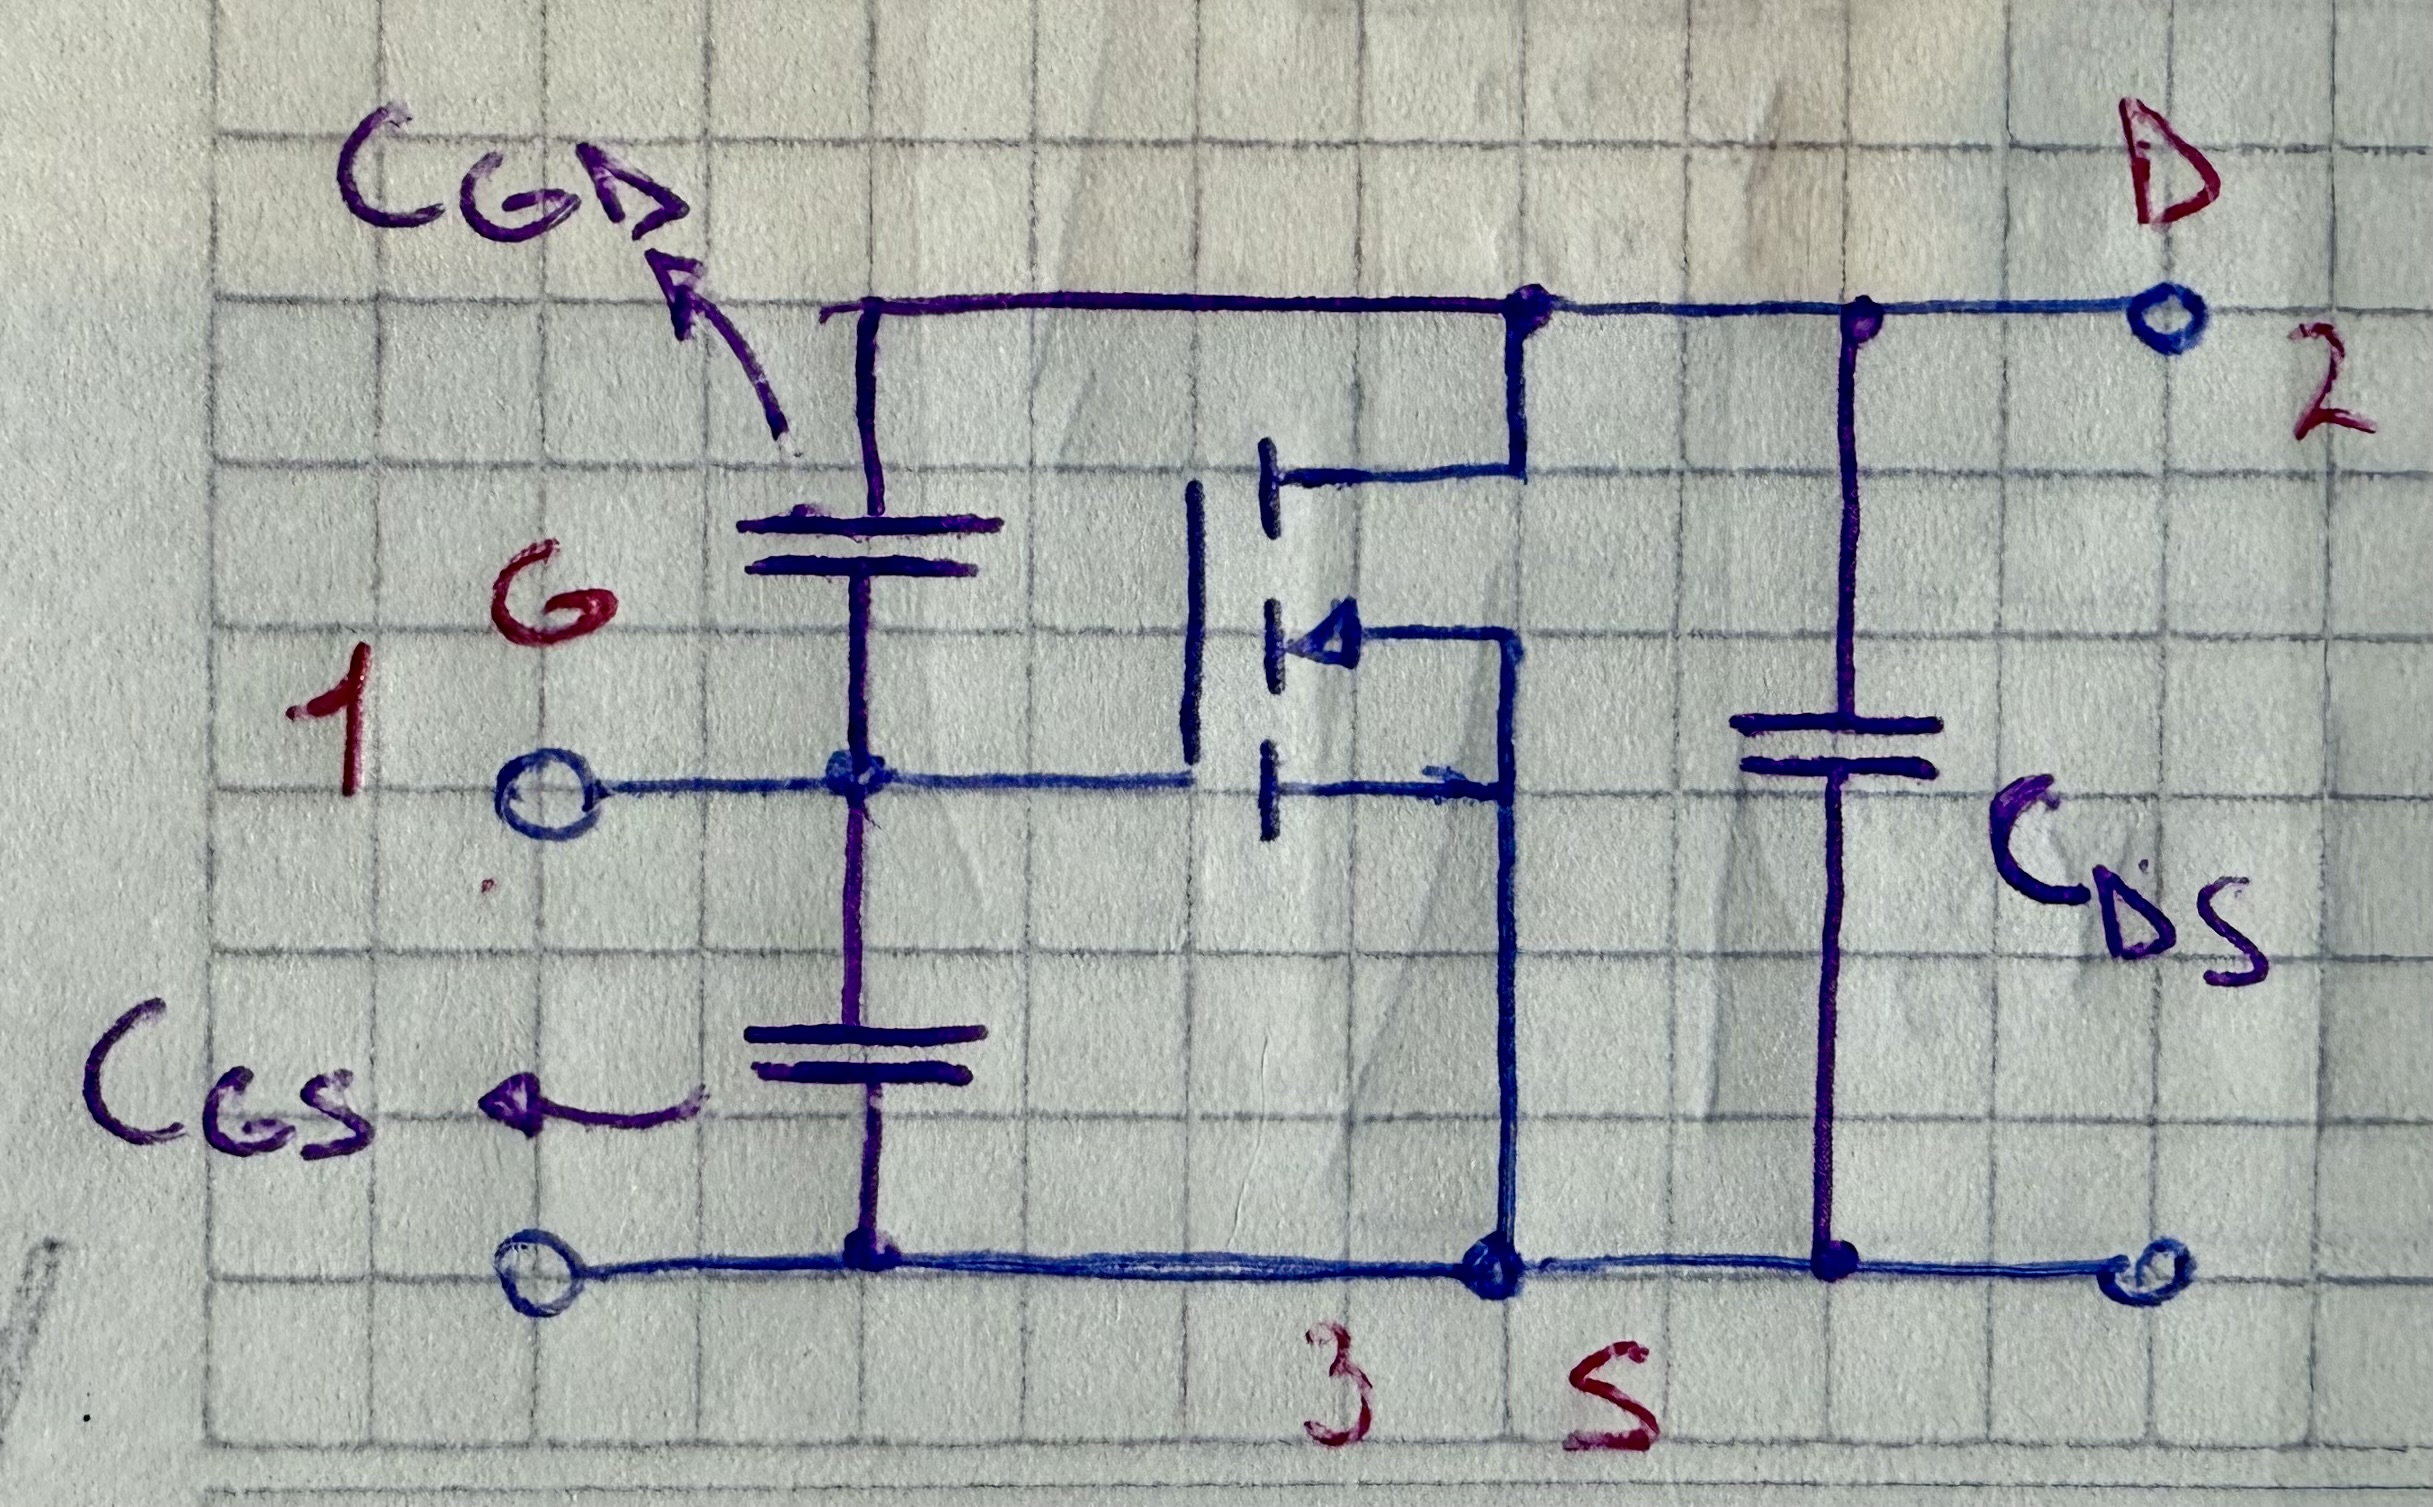 C_GD
D
2
G
1
C_DS
C_GS
3 S